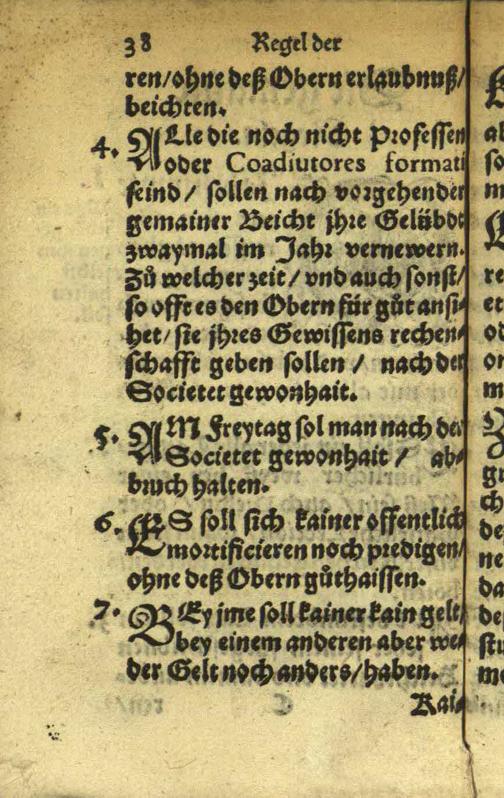 38 Regel der
ren/ohne deß Obern erlaubnuß/
beichten.
4. ALle die noch nicht Professen
oder Coadiutores formati
seind / sollen nach vorgehender
gemainer Beicht jhre Gelübdt
zwaymal im Jahr vernewern.
Zů welcher zeit / vnd auch sonst/
so offt es den Obern für gůt ansi⸗
het/ sie jhres Gewissens rechen⸗
schafft geben sollen / nach der
Societet gewonhait.
5. AM Freytag sol man nach der
Societet gewonhait / ab⸗
bruch halten.
6. ES soll sich kainer offentlich
mortificieren noch predigen/
ohne deß Obern gůthaissen.
7. BEy jme soll kainer kain gelt/
bey einem anderen aber we⸗
der Gelt noch anders/haben.
Kai⸗